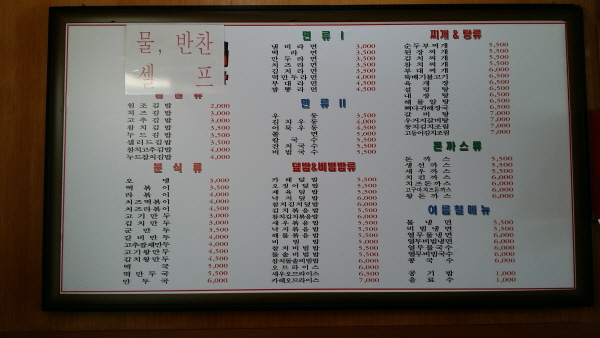 물, 반찬
셀 프
원조김밥 2,000
치즈김밥 3,000
고추김밥 3,000
참치김밥 3,500
누드김밥 3,500
샐러드김밥 3,500
참치고추김밥 4,000
누드참치김밥 4,000
분식류
오뎅 3,000
떡볶이 3,500
라볶이 3,500
치즈떡볶이 4,000
치즈라볶이 4,500
고기만두 3,000
김치만두 3,000
군만두 3,500
갈비만두 4,000
고추잡채만두 4,000
고기왕만두 4,500
김치왕만두 4,500
떡국 5,000
떡만두국 5,500
만두국 6,000
면류 I
냄비라면 3,000
떡라면 3,500
만두라면 3,500
치즈라면 3,500
김치라면 3,500
떡만두라면 4,000
부대라면 4,500
짬뽕라면 4,500
면류 II
우동 3,500
김치우동 4,000
어묵우동 4,500
쫄면
칼국수
잔치국수
비빔국수 5,500
덮밥&비빔밥류
카레덮밥 5,500
오징어덮밥 5,500
제육덮밥 5,500
낙지덮밥
참치김치덮밥
김치볶음밥
참치김치볶음밥
새우볶음밥
낙지볶음밥
해물볶음밥
비빔밥
참치비빔밥
돌솥비빔밥
참치돌솥비빔밥
오므라이스 6,000
새우오므라이스 6,500
카레오므라이스 7,000
찌개 & 탕류
순두부찌개 5,500
된장찌개 5,500
김치찌개 5,500
참치찌개
부대찌개
뚝배기불고기 6,500
육개장 6,500
설렁탕 6,500
내장탕 6,500
해물알탕 6,500
뼈다귀해장국 6,500
갈비탕 7,000
우거지갈비탕 7,000
꽁치김치조림 7,000
고등어김치조림 7,000
돈까스류
돈까스 5,500
생선까스
새우까스
치킨까스
치즈돈까스
고구마치즈돈까스
왕돈까스
여름철메뉴
물냉면 5,500
비빔냉면 5,500
열무물냉면
열무비빔냉면
열무물국수
열무비빔국수
콩국수 6,000
공기밥 1,000
음료수 1,000